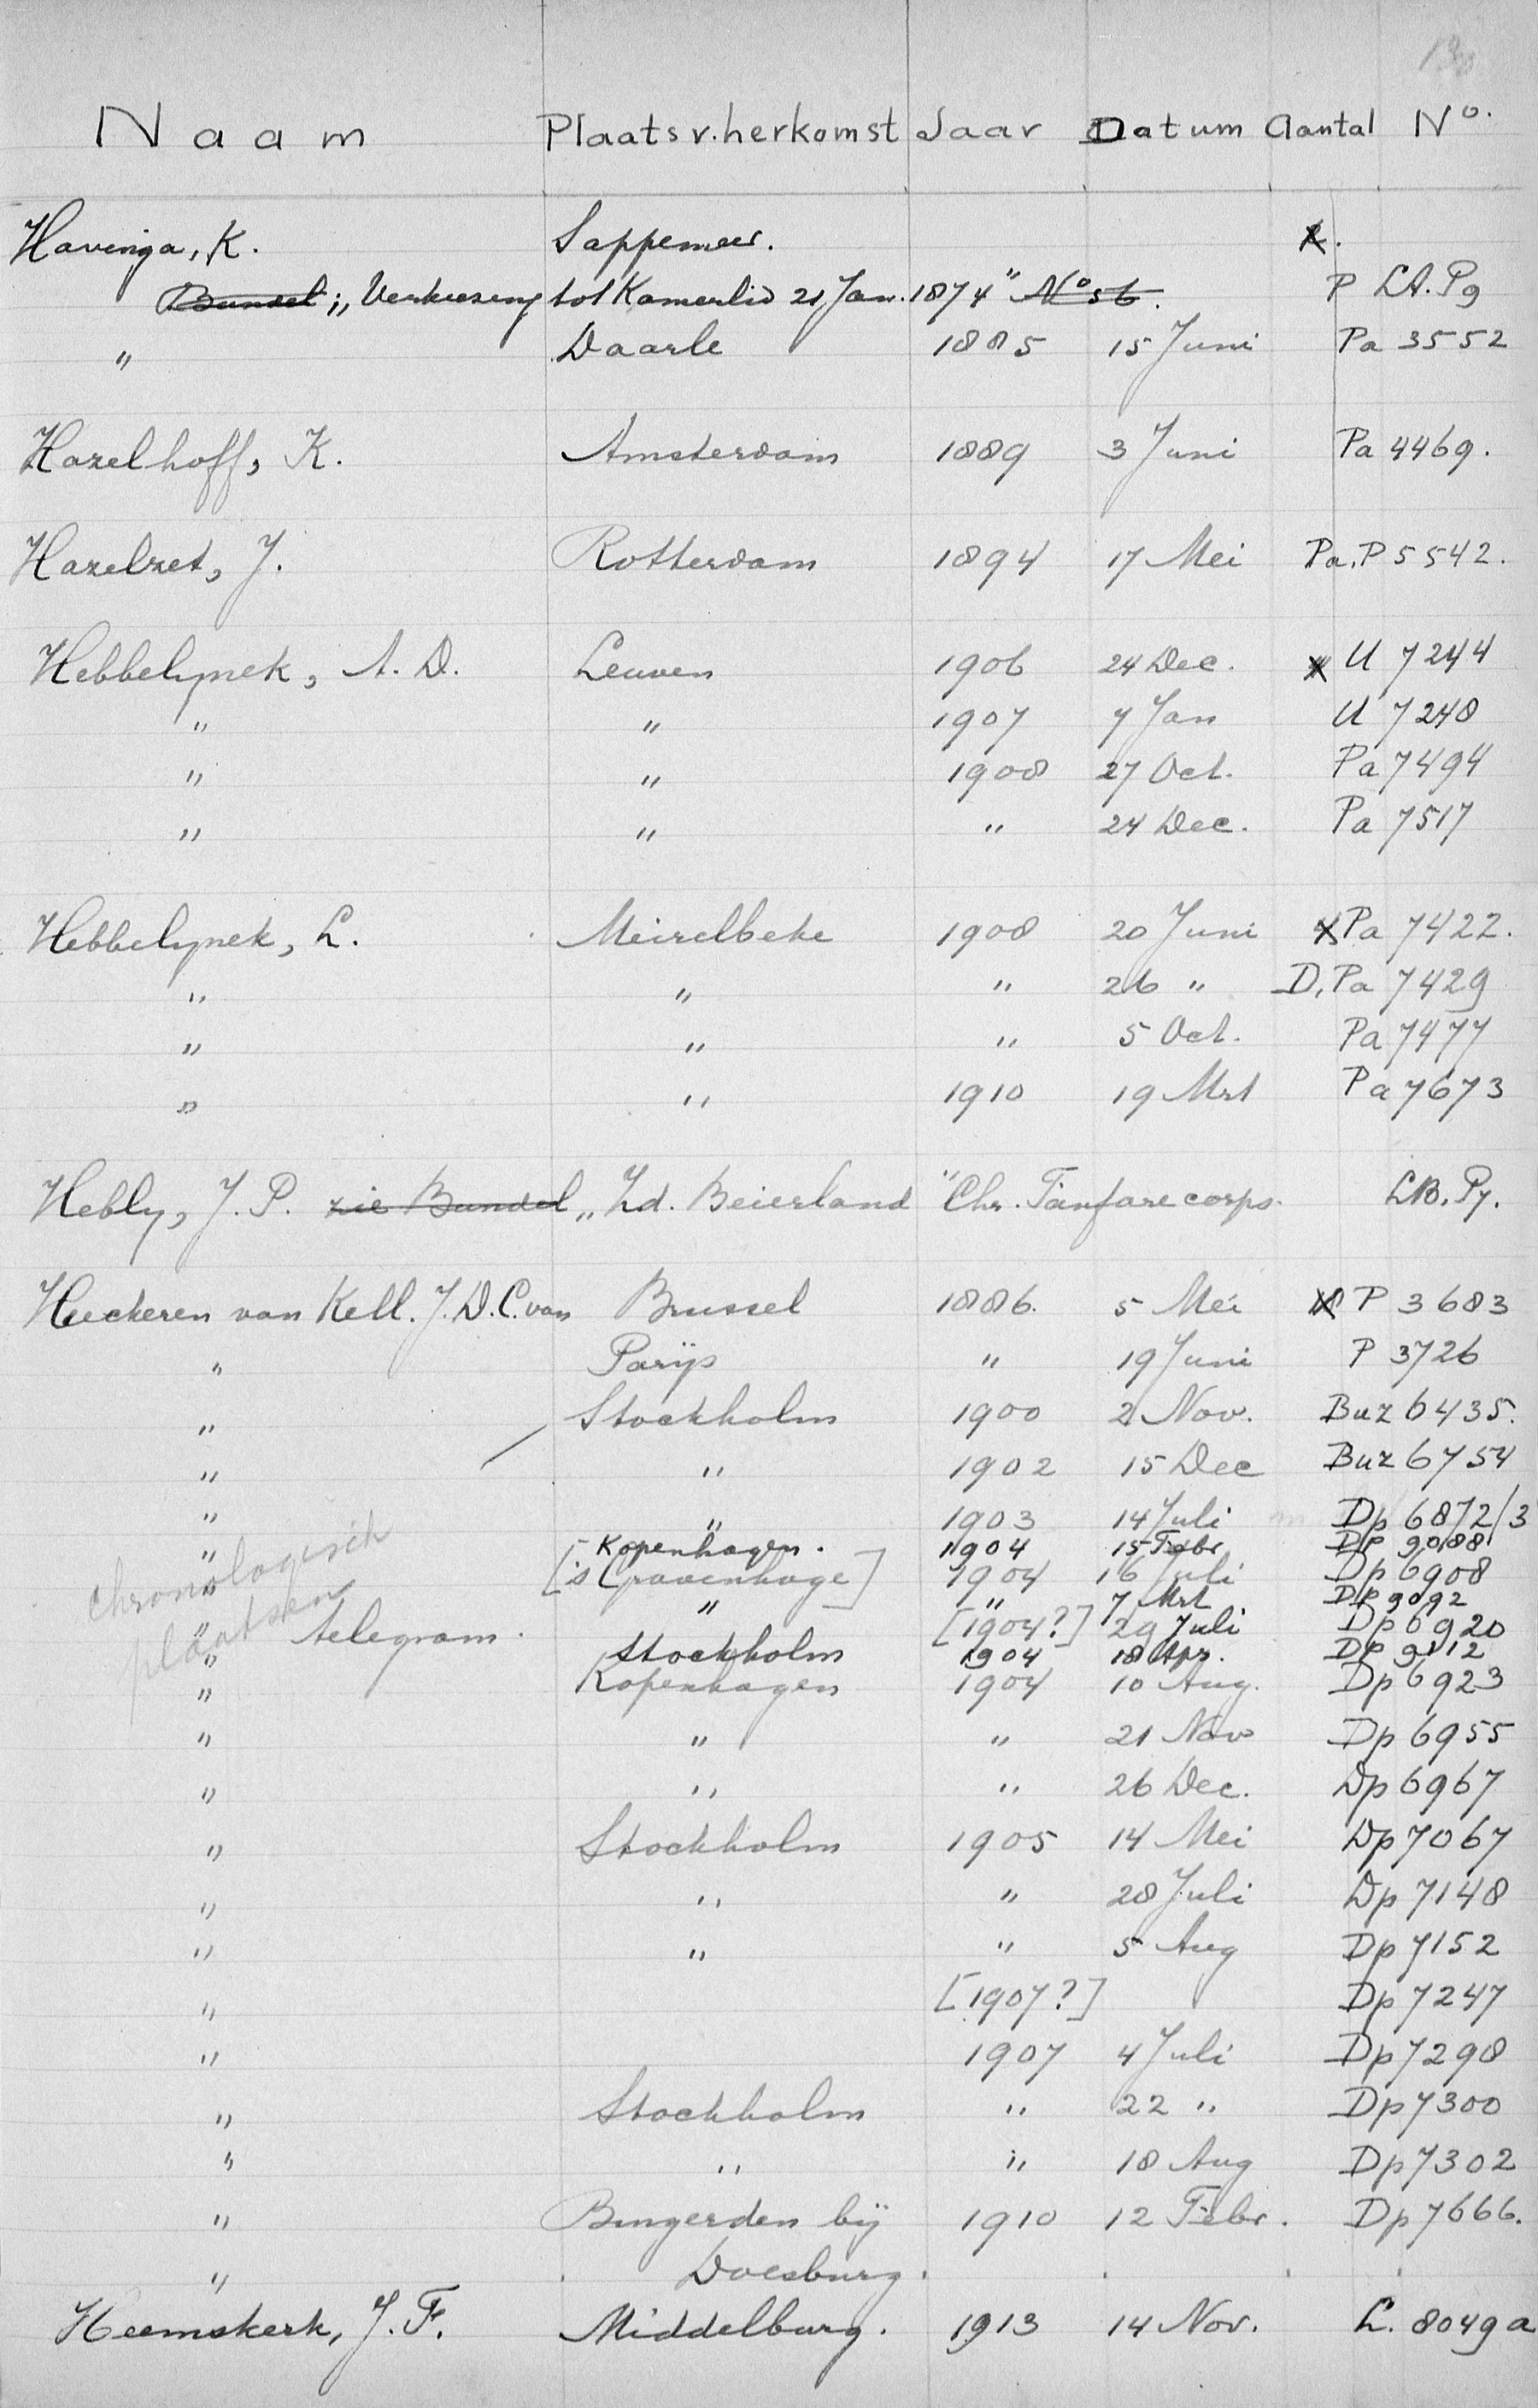 130
Naam Plaats v. herkomst Jaar Datum Aantal No.
Havinga, K. Sappemeer.
Bundel; „Verkiezing tot Kamerlid 21 Jan. 1874" No 56. P LA. P9
" Daarle 1885 15 Juni Pa 3552
Hazelhoff, K. Amsterdam 1889 3 Juni Pa 4469.
Hazelzet, J. Rotterdam 1894 17 Mei Pa. P 5542.
Hebbelynck, A. D. Leuven 1906 24 Dec. U 7244
" " 1907 7 Jan U 7248
" " 1908 27 Oct. Pa 7494
" " " 24 Dec. Pa 7517
Hebbelynck, L. Meirelbeke 1908 20 Juni Pa 7422.
" " " 26 " D, Pa 7429
" " " 5 Oct. Pa 7477
" " 1910 19 Mrt Pa 7673
Hebly, J. P. zie Bundel „Zd. Beierland" Chr. Fanfarecorps. LB. P7.
Heeckeren van Kell. J. D. C. van Brussel 1886. 5 Mei P 3683
" Parijs " 19 Juni P 3726
" Stockholm 1900 2 Nov. Buz 6435.
" " 1902 15 Dec Buz 6754
" " 1903 14 Juli Dp 6872/3
" Kopenhagen. 1904 15 Febr Dp 9088
" ['s Gravenhage] 1904 16 Juli Dp 6908
" " 7 Mrt Dp 9092
" telegram. [1904?] 29 Juli Dp 6920
" Stockholm 1904 18 Apr. Dp 9112
" Kopenhagen 1904 10 Aug. Dp 6923
chronologisch
plaatsen
" " " 21 Nov Dp 6955
" " " 26 Dec. Dp 6967
" Stockholm 1905 14 Mei Dp 7067
" " " 28 Juli Dp 7148
" " " 5 Aug Dp 7152
" [1907?] Dp 7247
" 1907 4 Juli Dp 7298
" Stockholm " 22 " Dp 7300
" " " 18 Aug Dp 7302
" Bingerden bij 1910 12 Febr. Dp 7666.
" Doesburg.
Heemskerk, J. F. Middelburg. 1913 14 Nov. L. 8049a